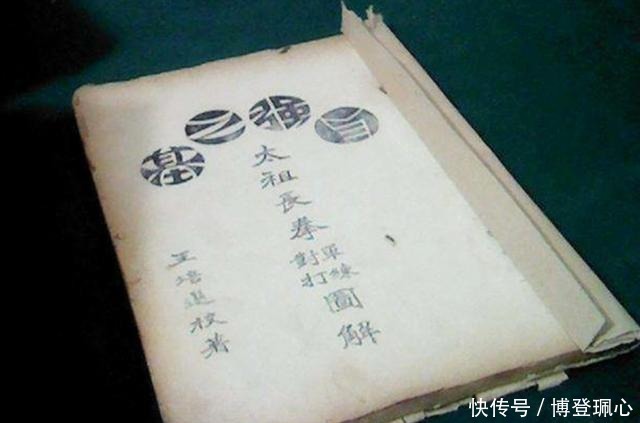 自强之基
太祖長拳單練對打圖解
王培校著
快传号 / 博登珮心